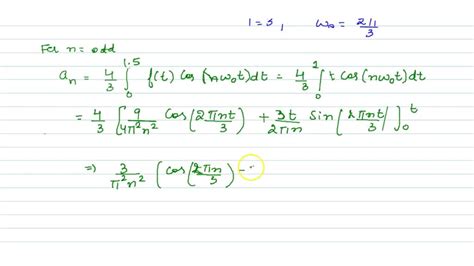 T = 3, ω₀ = 2π/3
For n = odd
aₙ = 4/3 ∫₀^1.5 f(t) Cos(nω₀t)dt = 4/3 ∫₀^1 t Cos(nω₀t)dt
= 4/3 [9/4π²n² Cos(2πnt/3) + 3t/2πn Sin(2πnt/3)]₀^t
⇒ 3/π²n² (Cos(2πn/3) -